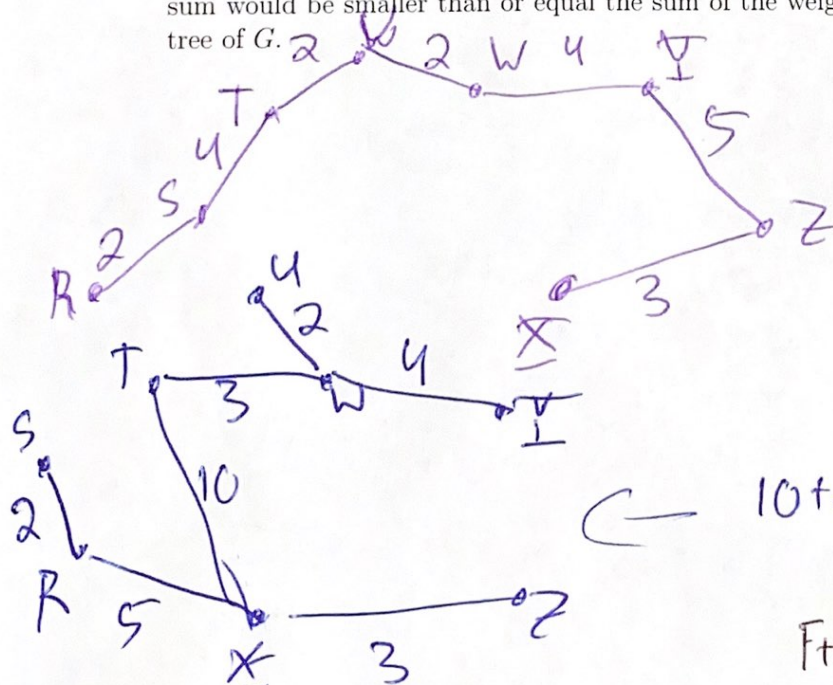 sum would be smaller than or equal the sum of the weig
tree of G.
2 2 W 4 Y
T
4 5
S Z
2
R 3
X
U
2
T 4
3 W Y
S
10
2 10+
R
5 Z
X 3
Ft